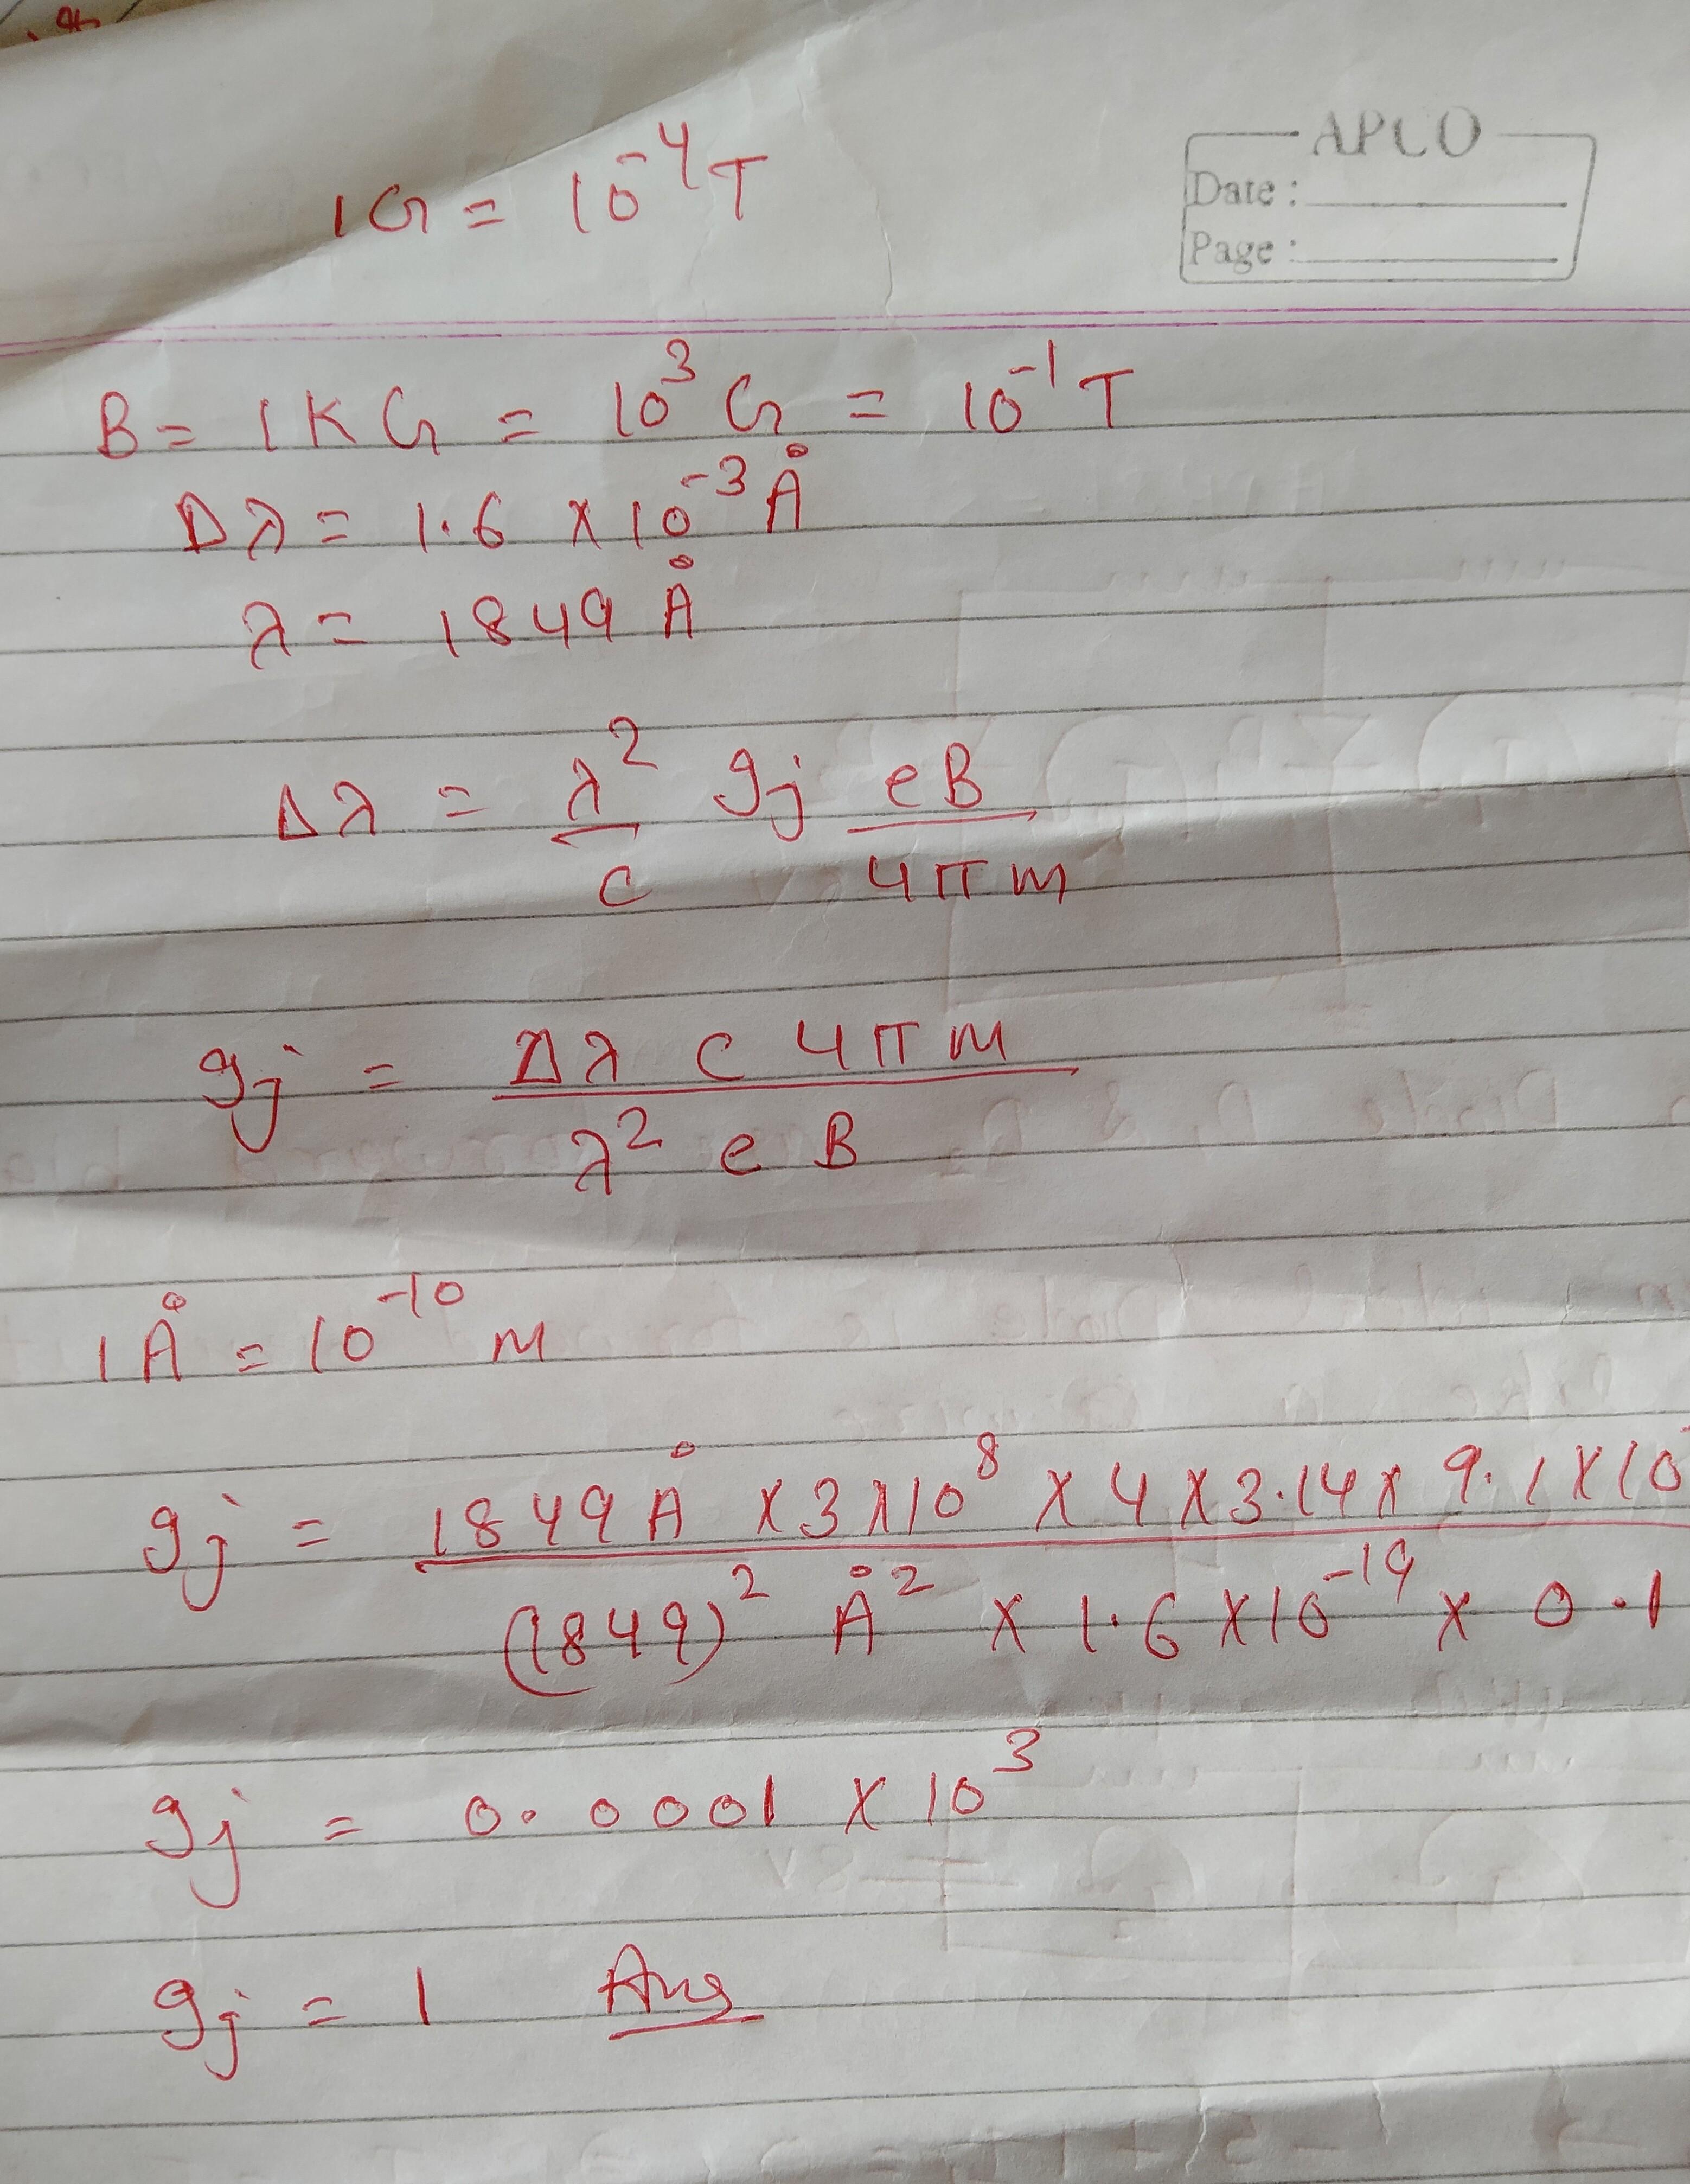 1G = 10⁻⁴ T
APCO
Date :
Page :
B = 1KG = 10³ G = 10⁻¹ T
Δλ = 1.6 × 10⁻³ Å
λ = 1849 Å
Δλ = λ²/c gj eB/4πm
gj = Δλ c 4πm / λ² e B
1 Å = 10⁻¹⁰ m
gj = 1849 Å × 3×10⁸ × 4 × 3.14 × 9.1×10 / (1849)² Å² × 1.6×10⁻¹⁹ × 0.1
gj = 0.0001 × 10³
gj = 1 Ans